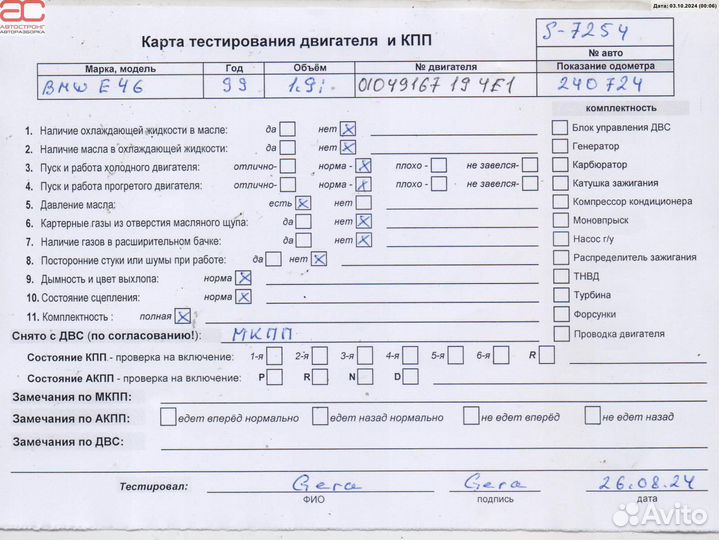 Дата: 03.10.2024 (00:06)
АС
АВТОСТРОНГ
АВТОРАЗБОРКА
Карта тестирования двигателя и КПП
S-7254
№ авто
Марка, модель Год Объём № двигателя Показание одометра
BMW E46 99 1.9i 01049167 19 4E1 240724
комплектность
1. Наличие охлаждающей жидкости в масле: да нет Блок управления ДВС
2. Наличие масла в охлаждающей жидкости: да нет Генератор
3. Пуск и работа холодного двигателя: отлично- норма - плохо - не завелся- Карбюратор
4. Пуск и работа прогретого двигателя: отлично- норма - плохо - не завелся- Катушка зажигания
5. Давление масла: есть нет Компрессор кондиционера
6. Картерные газы из отверстия масляного щупа: да нет Моновпрыск
7. Наличие газов в расширительном бачке: да нет Насос г/у
8. Посторонние стуки или шумы при работе: да нет Распределитель зажигания
9. Дымность и цвет выхлопа: норма ТНВД
10. Состояние сцепления: норма Турбина
11. Комплектность : полная Форсунки
Снято с ДВС (по согласованию!): МКПП Проводка двигателя
Состояние КПП - проверка на включение: 1-я 2-я 3-я 4-я 5-я 6-я R
Состояние АКПП - проверка на включение: P R N D
Замечания по МКПП:
Замечания по АКПП: едет вперёд нормально едет назад нормально не едет вперёд не едет назад
Замечания по ДВС:
Тестировал: Gera Gera 26.08.24
ФИО подпись дата
Avito